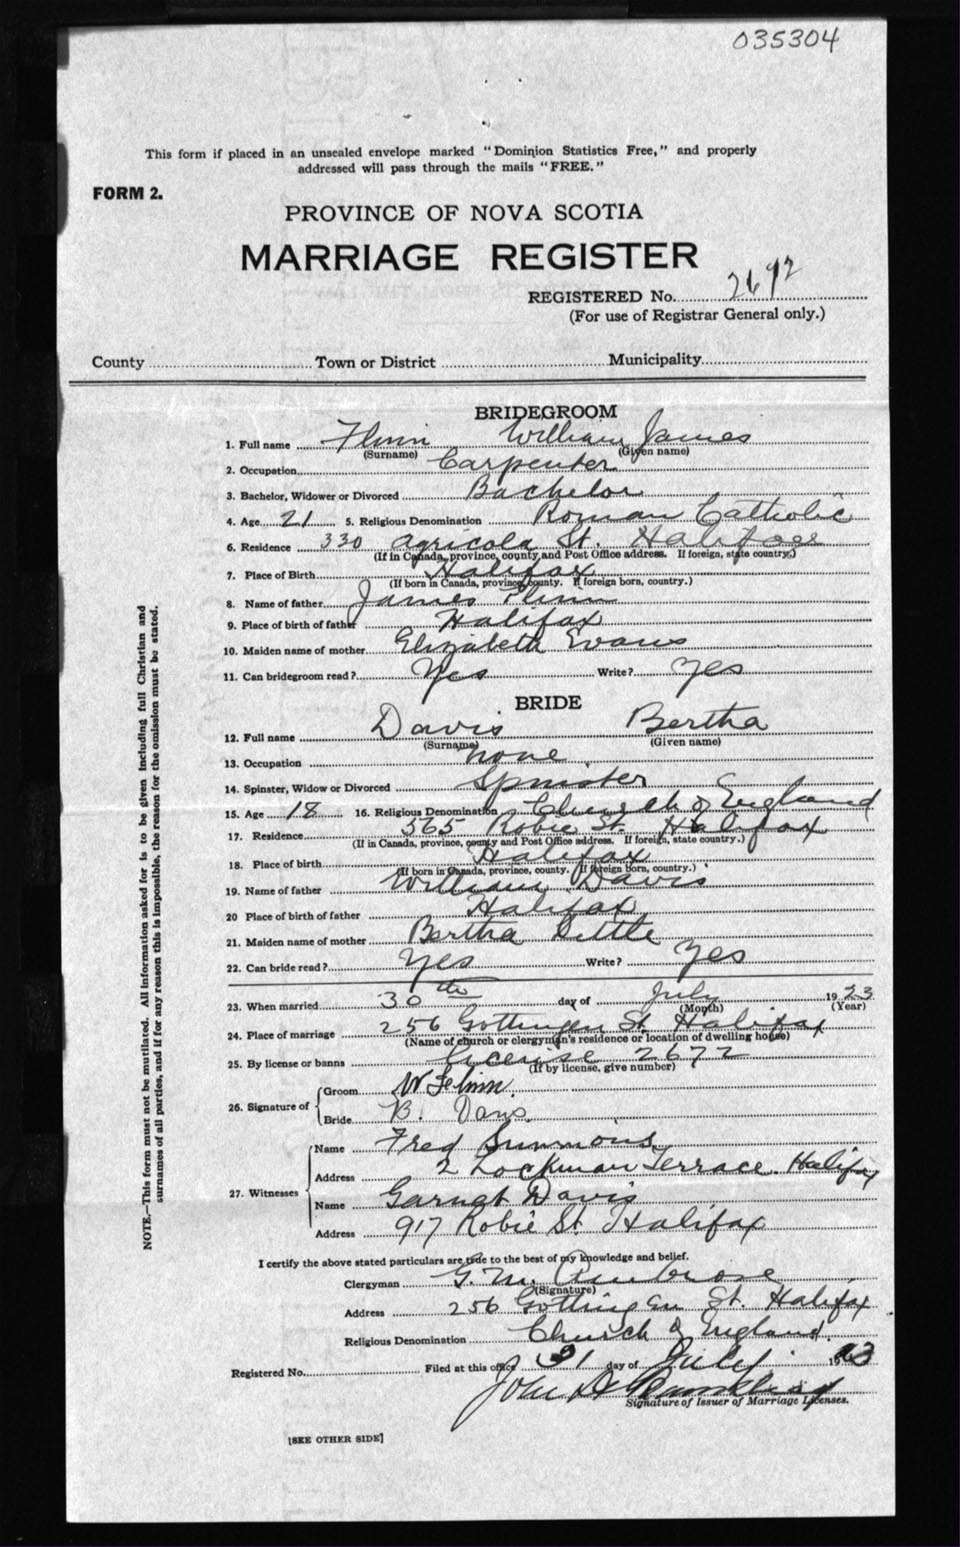 035304
This form if placed in an unsealed envelope marked "Dominion Statistics Free," and properly
addressed will pass through the mails "FREE."
FORM 2.
PROVINCE OF NOVA SCOTIA
MARRIAGE REGISTER
REGISTERED No. 2692
(For use of Registrar General only.)
County Town or District Municipality
BRIDEGROOM
1. Full name Flinn William James
(Surname) (Given name)
2. Occupation Carpenter
3. Bachelor, Widower or Divorced Bachelor
4. Age 21 5. Religious Denomination Roman Catholic
6. Residence 330 Agricola St. Halifax
(If in Canada, province, county and Post Office address. If foreign, state country.)
7. Place of Birth Halifax
(If born in Canada, province, county. If foreign born, country.)
8. Name of father James Flinn
9. Place of birth of father Halifax
10. Maiden name of mother Elizabeth Evans
11. Can bridegroom read? Yes Write? Yes
BRIDE
12. Full name Davis Bertha
(Surname) (Given name)
13. Occupation none
14. Spinster, Widow or Divorced Spinster
15. Age 18 16. Religious Denomination Church of England
17. Residence 565 Robie St. Halifax
(If in Canada, province, county and Post Office address. If foreign, state country.)
18. Place of birth Halifax
(If born in Canada, province, county. If foreign born, country.)
19. Name of father William Davis
20 Place of birth of father Halifax
21. Maiden name of mother Bertha
22. Can bride read? Yes Write? Yes
23. When married 30th day of July 1923
(Month) (Year)
24. Place of marriage 256 Gottingen St. Halifax
(Name of church or clergyman's residence or location of dwelling house)
25. By license or banns License 2672
(If by license, give number)
26. Signature of Groom W Flinn.
Bride B. Davis
27. Witnesses Name Fred Simmons
Address 2 Lockman Terrace. Halifax
Name Garnet Davis
Address 917 Robie St. Halifax
I certify the above stated particulars are true to the best of my knowledge and belief.
Clergyman G. M. Ambrose
(Signature)
Address 256 Gottingen St. Halifax
Religious Denomination Church of England.
Registered No. Filed at this office 31 day of July 1923
John
Signature of Issuer of Marriage Licenses.
[SEE OTHER SIDE]
NOTE.—This form must not be mutilated. All information asked for is to be given including full Christian and
surnames of all parties, and if for any reason this is impossible, the reason for the omission must be stated.